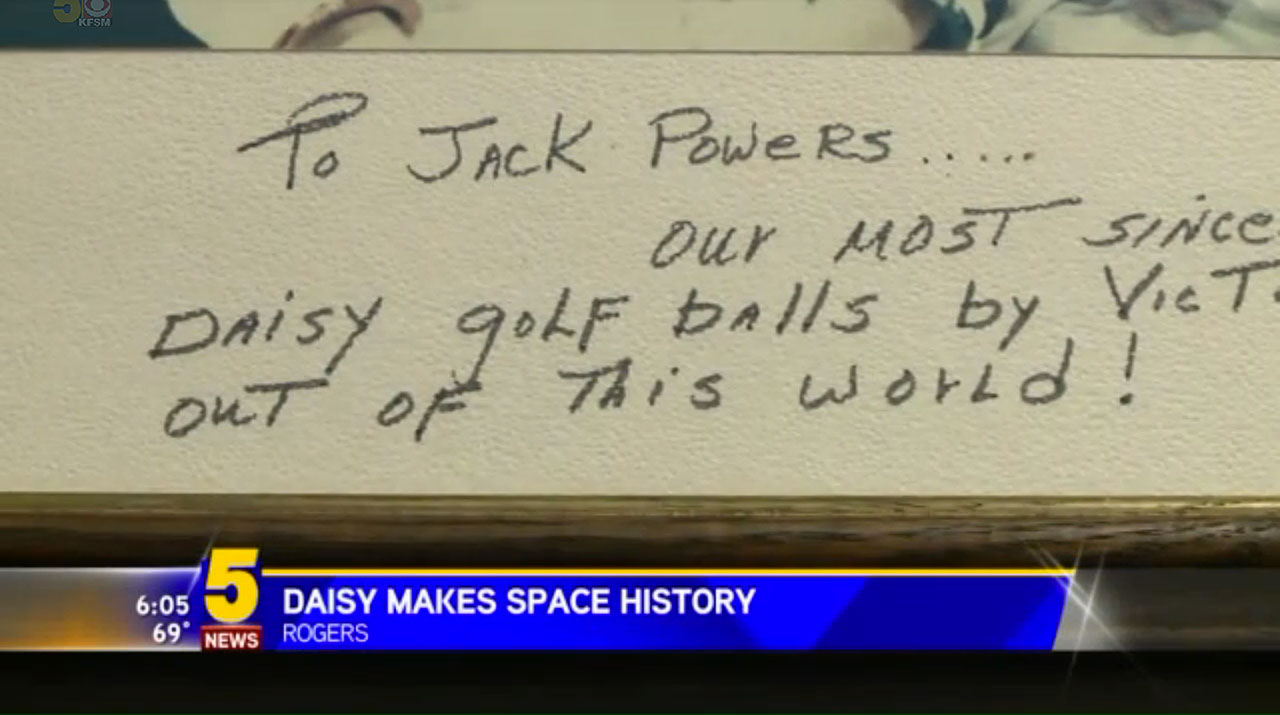 5 KFSM
To Jack Powers.....
our most since
Daisy golf balls by Vict
out of this world!
6:05
69°
5
NEWS
DAISY MAKES SPACE HISTORY
ROGERS